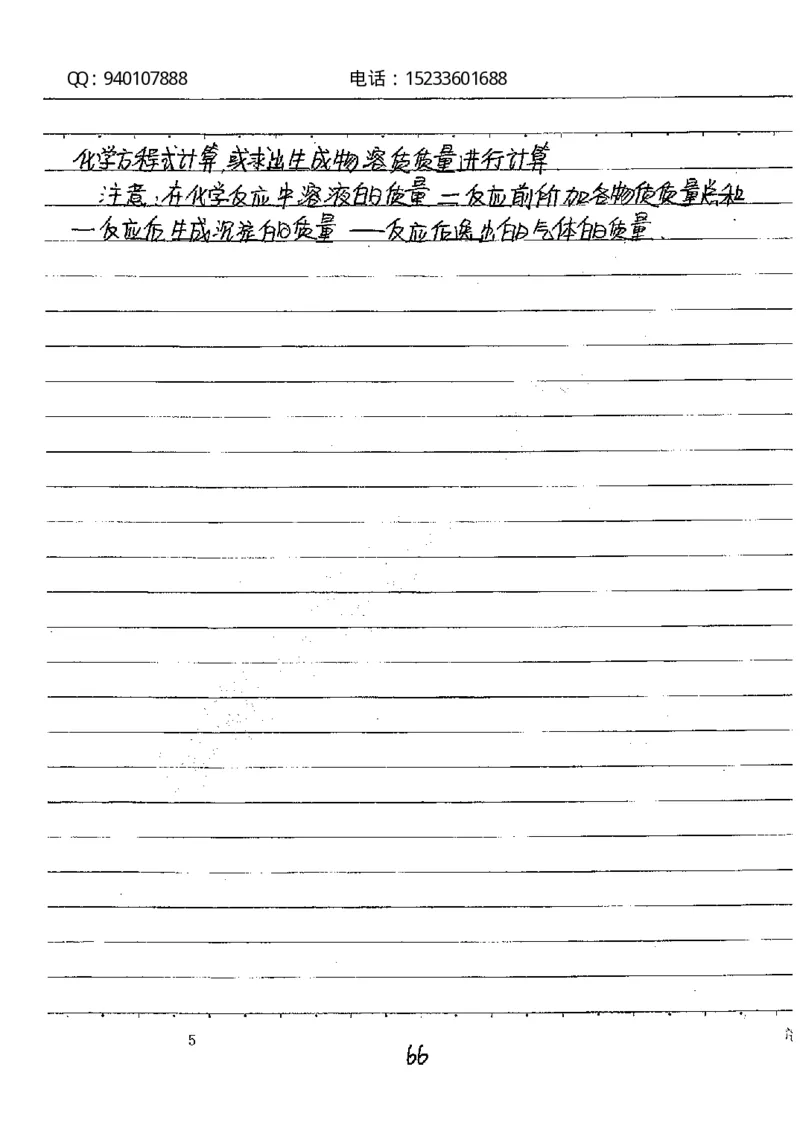 QQ：940107888 电话：15233601688
化学方程式计算,或求出生成物溶质质量进行计算
注意:在化学反应中溶液的质量=反应前所加各物质质量总和
—反应后生成沉淀的质量 —反应后逸出的气体的质量.
5
66